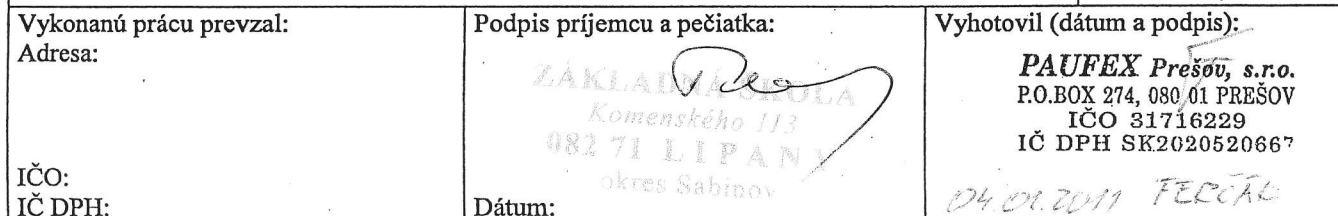 Vykonanú prácu prevzal:
Adresa:
IČO:
IČ DPH:
Podpis príjemcu a pečiatka:
ZÁKLADNÁ ŠKOLA
Komenského 113
082 71 LIPANY
okres Sabinov
Dátum:
Vyhotovil (dátum a podpis):
PAUFEX Prešov, s.r.o.
P.O.BOX 274, 080 01 PREŠOV
IČO 31716229
IČ DPH SK2020520667
04.01.2011